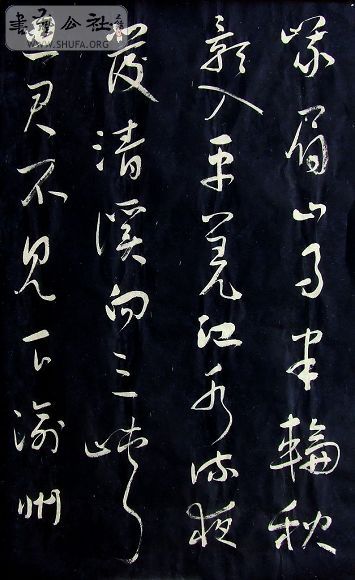 峨眉山月半輪秋
影入平羌江水流夜
發清溪向三峽
思君不見下渝州
書法公社
WWW.SHUFA.ORG